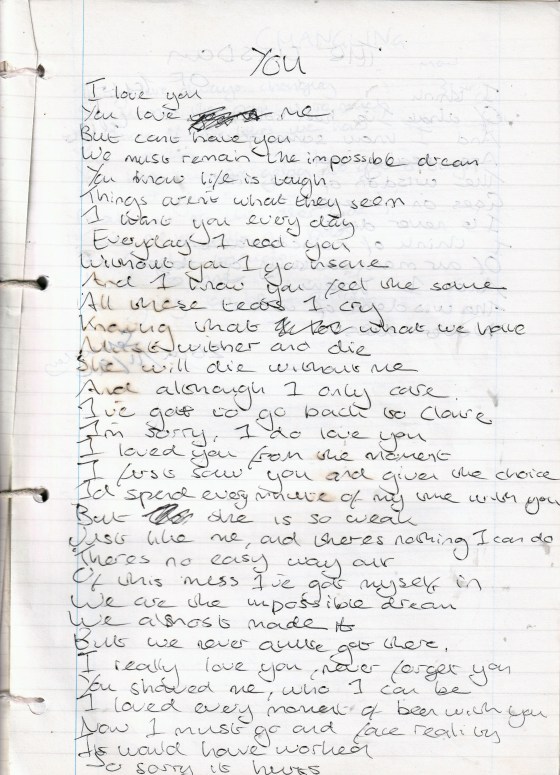 You
I love you
You love me
But cant have you
We must remain the impossible dream
You know life is tough
Things arent what they seem
I want you every day
Everyday I need you
Without you I go insane
And I know you feel the same
All these tears I cry
Knowing that what we have
Must wither and die
She will die without me
And although I only care
I've got to go back to Claire
I'm sorry, I do love you
I loved you from the moment
I first saw you and given the choice
Id spend every minute of my time with you
But she is so weak
Just like me, and theres nothing I can do
Theres no easy way out
Of this mess I've got myself in
We are the impossible dream
We almost made it
But we never quite got there.
I really love you, never forget you
You showed me, who I can be
I loved every moment of been with you
Now I must go and face reality
It would have worked
So sorry it hurts